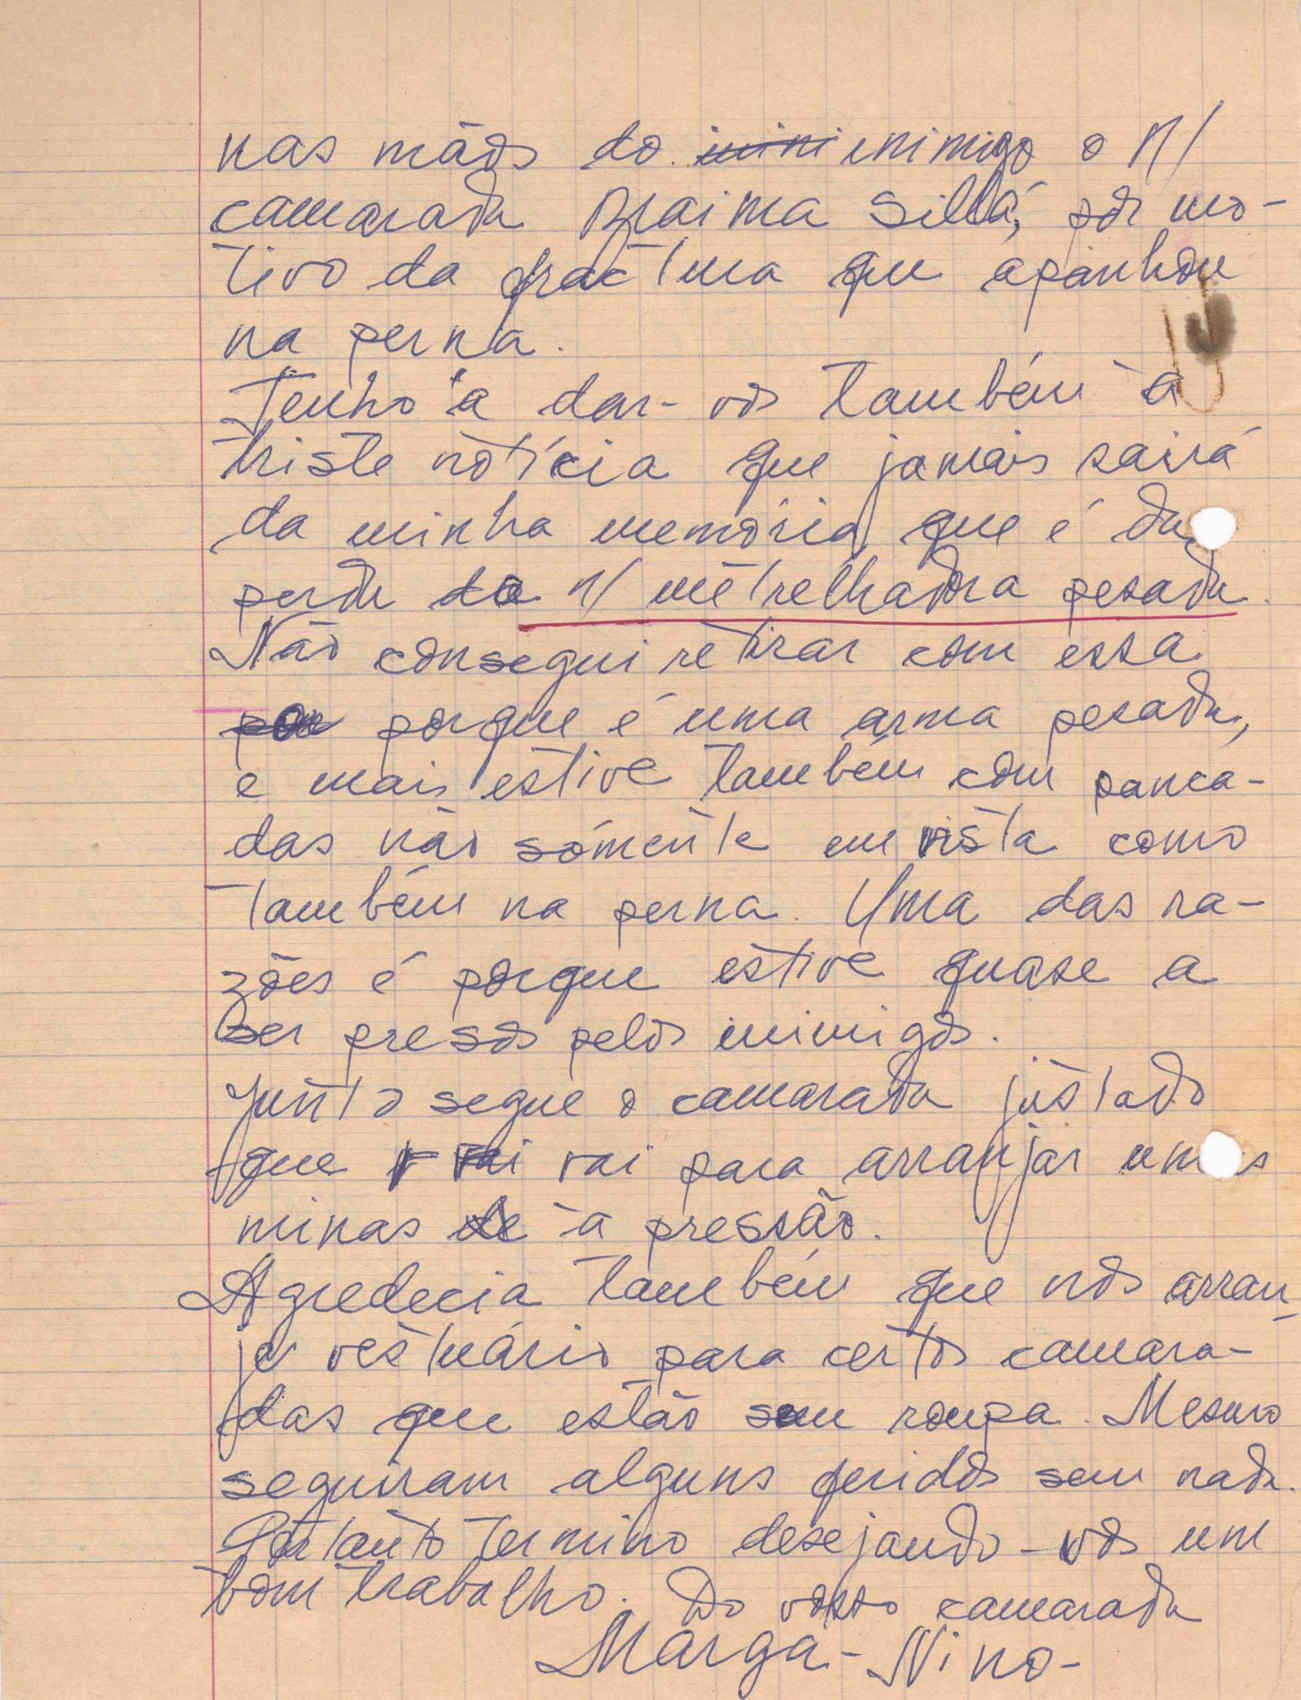 nas mãos do inini inimigo o n/
camarada Braima Sillá, por mo-
tivo da fractura que apanhou
na perna.
Tenho a dar-vos também a
triste notícia que jamais sairá
da minha memória, que é da
perda da n/ metrelhadora pesada.
Não consegui retirar com essa
por porque é uma arma pesada,
e mais estive também com panca-
das não sómente em vista como
também na perna. Uma das ra-
zões é porque estive quase a
ser presos pelos inimigos.
Junto segue o camarada justado
que vai vai para arranjar umas
minas de à pressão.
Agradecia também que nos arran-
je vestuário para certos camara-
das que estão sem roupa. Mesmo
seguiram alguns feridos sem nada.
Portanto termino desejando-vos um
bom trabalho. Do vosso camarada
Margá-Nino-